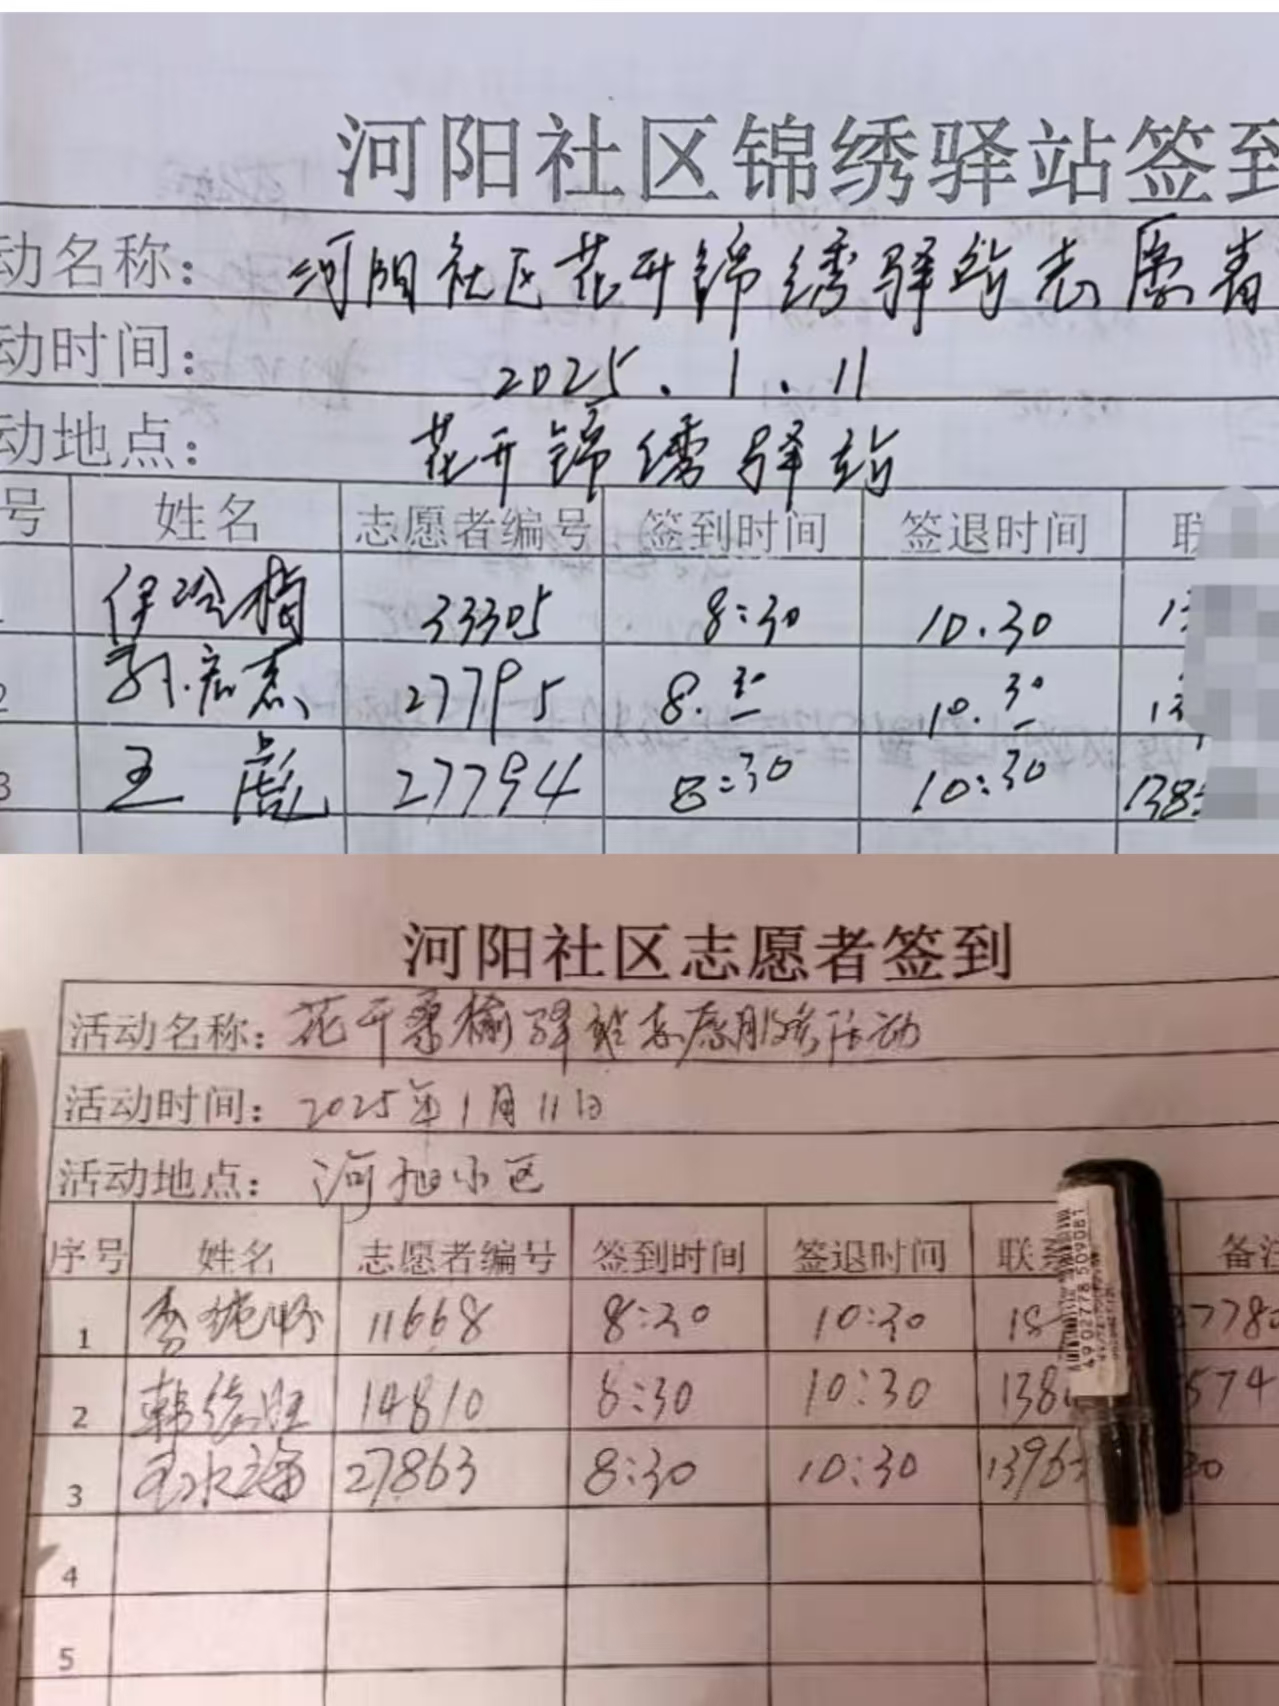 河阳社区锦绣驿站签到
动名称： 河阳社区花开锦绣驿站志愿者
动时间： 2025.1.11
动地点： 花开锦绣驿站
号 姓名 志愿者编号 签到时间 签退时间 联
伊冷梅 33305 8:30 10.30 13
2 27795 8.30 10.30 13
3 王彪 27794 8:30 10:30 138
河阳社区志愿者签到
活动名称： 花开桑榆驿站志愿服务活动
活动时间： 2025年1月11日
活动地点： 河旭小区
序号 姓名 志愿者编号 签到时间 签退时间 联 备注
1 李 11668 8:30 10:30 15 7780
2 韩德旺 14810 8:30 10:30 138 574
3 王永海 27863 8:30 10:30 1396 30
4
5
4902778 509081